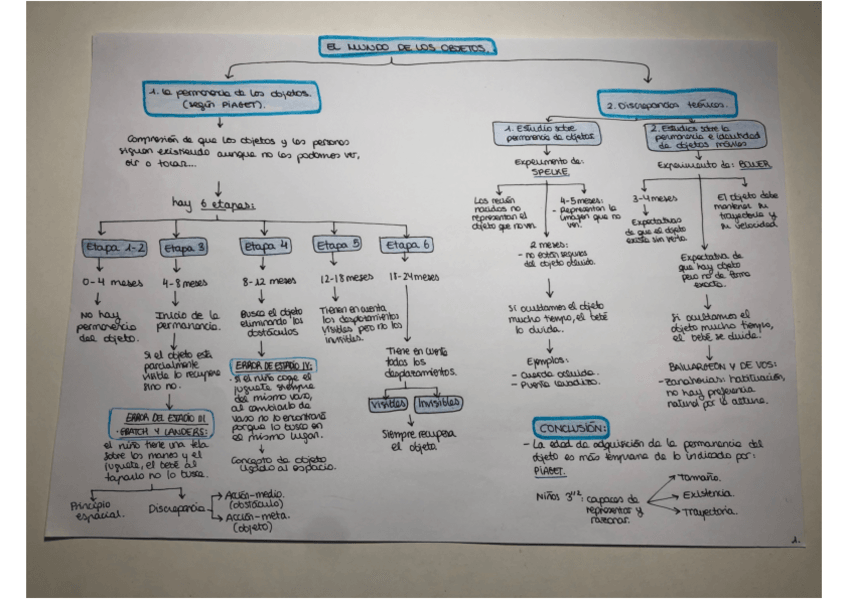 EL MUNDO DE LOS OBJETOS.
1. La permanencia de los objetos.
(según PIAGET).
Comprensión de que los objetos y las personas
siguen existiendo aunque no los podamos ver,
oir o tocar...
hay 6 etapas:
Etapa 1-2
0-4 meses
No hay
permanencia
del objeto.
Etapa 3
4-8 meses
Inicio de la
permanencia.
Si el objeto está
parcialmente
visible lo recupera
sino no.
ERROR DEL ESTADIO III
- BRATCH Y LANDERS:
el niño tiene una tela
sobre las manos y el
juguete, el bebé al
taparlo no lo busca.
Principio
espacial.
Discrepancia
Acción-medio.
(obstáculo)
Acción-meta.
(objeto)
Etapa 4
8-12 meses
Busca el objeto
eliminando los
obstáculos
ERROR DE ESTADIO IV:
- si el niño coge el
juguete siempre
del mismo vaso,
al cambiarlo de
vaso no lo encontrará
porque lo busca en
el mismo lugar.
Concepto de objeto
ligado al espacio.
Etapa 5
12-18 meses
Tienen en cuenta
los desplazamientos
visibles pero no los
invisibles.
Etapa 6
18-24 meses
Tiene en cuenta
todos los
desplazamientos.
Visibles
Invisibles
Siempre recupera
el objeto
2. Discrepancias teóricas.
1. Estudio sobre
permanencia de objetos
Experimento de:
SPELKE
Los recién
nacidos no
representan el
objeto que no ven.
4-5 meses:
- Representan la
imagen que no
ven.
2 meses:
- no están seguros
del objeto ocluido.
Si ocultamos el objeto
mucho tiempo, el bebé
lo olvida.
Ejemplos:
- Cuerda ocluida.
- Puente levadizo.
2. Estudios sobre la
permanencia e identidad
de objetos móviles
Experimento de: BOWER
3-4 meses
Expectativas
de que el objeto
existe sin verlo.
El objeto debe
mantener su
trayectoria y
su velocidad
Expectativa de
que hay objeto
pero no de forma
exacta.
Si ocultamos el
objeto mucho tiempo,
el bebé se olvida.
BAILLARGEON Y DE VOS:
- Zanahorias: habituación,
no hay preferencia
natural por la altura.
CONCLUSIÓN:
- La edad de adquisición de la permanencia del
objeto es más temprana de lo indicado por:
PIAGET.
Niños 3"2: capaces de
representar y
razonar.
Tamaño.
Existencia.
Trayectoria.
1.